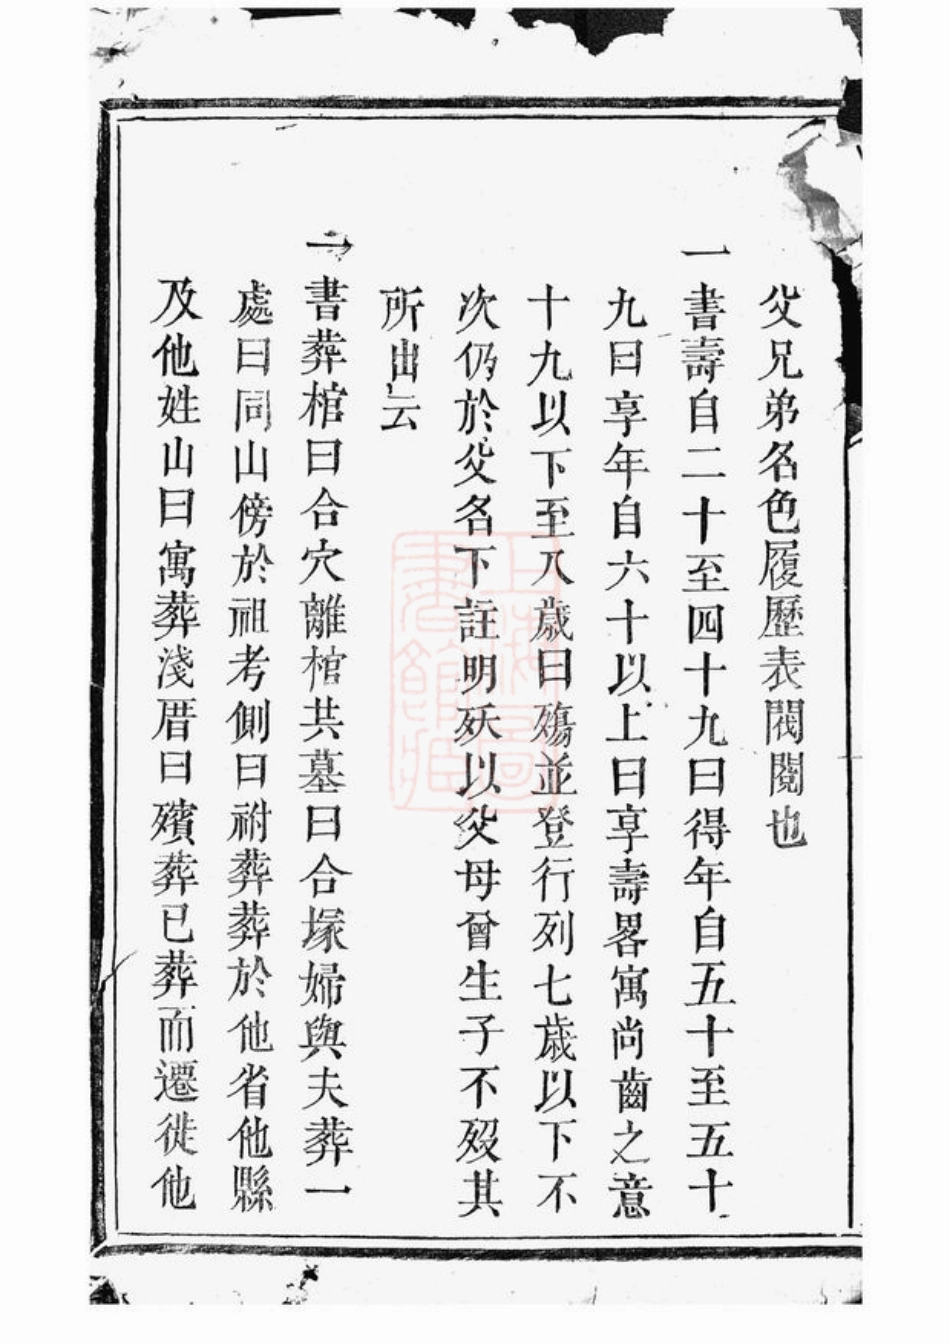 父兄弟名色履歷表閥閱也
一書壽自二十至四十九曰得年自五十至五十
九曰享年自六十以上曰享壽畧寓尚齒之意
十九以下至八歲曰殤並登行列七歲以下不
次仍於父名下註明殀以父母曾生子不歿其
所出云
一書葬棺曰合穴離棺共墓曰合塚婦與夫葬一
處曰同山傍於祖考側曰祔葬葬於他省他縣
及他姓山曰寓葬淺厝曰殯葬已葬而遷徙他
上海圖書館藏